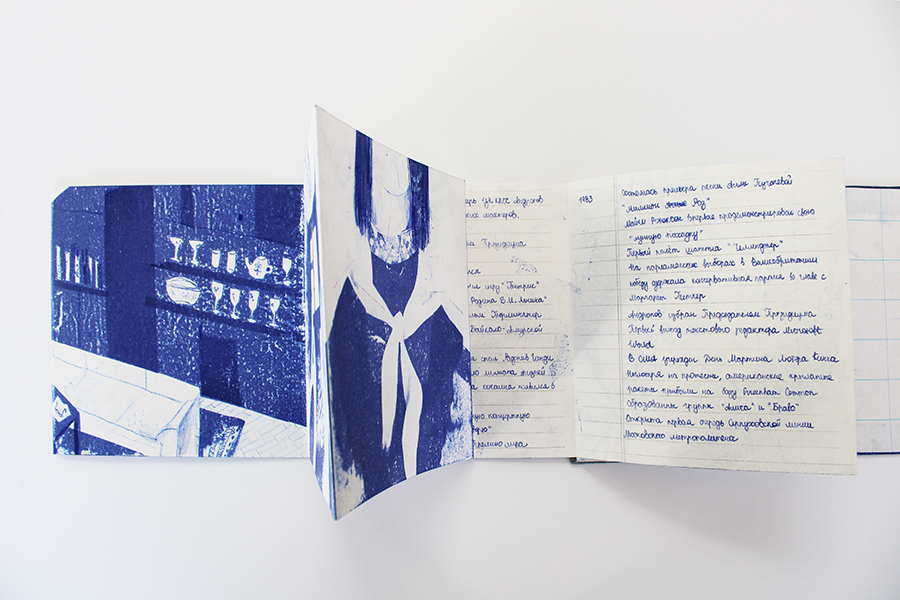 ких мастеров,
Президиума
игру "Тетрис"
"Родина В.И. Ленина"
Байкало-Амурской
стал Раджив Ганди
миллиона людей
появился в
1983
Состоялась премьера песни Аллы Пугачевой
"Миллион алых Роз"
Майкл Джексон впервые продемонстрировал свою
"лунную походку"
Первый полёт шаттла "Челленджер"
На парламентских выборах в Великобритании
победу одержала консервативная партия во главе с
Маргарет Тетчер
Андропов избран Председателем Президиума
Первый выход текстового редактора Microsoft
Word
В США учрежден День Мартина Лютера Кинга
Несмотря на протесты, американские крылатые
ракеты прибыли на базу Greenham Common
Образованы группы "Алиса" и "Браво"
Открыта первая очередь Серпуховской линии
Московского метрополитена